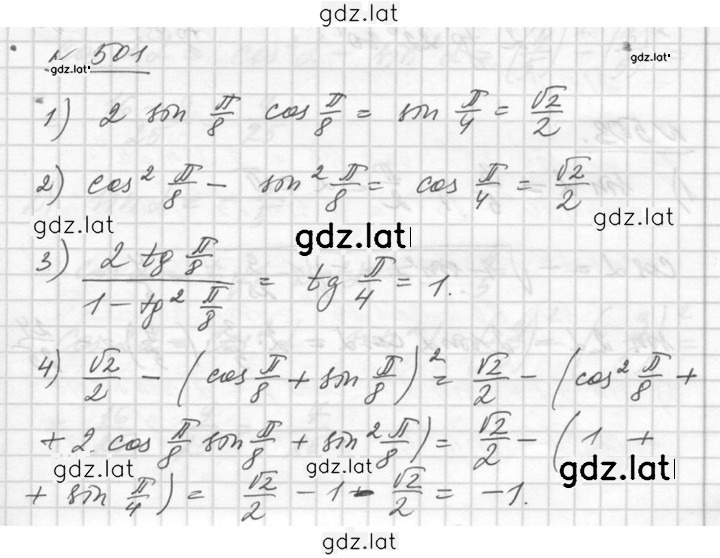 gdz.lat
№ 501
gdz.lat gdz.lat
1) 2 sin π/8 cos π/8 = sin π/4 = √2/2
2) cos² π/8 - sin² π/8 = cos π/4 = √2/2
gdz.lat gdz.lat gdz.lat
3) 2 tg π/8 / 1 - tg² π/8 = tg π/4 = 1.
4) √2/2 - (cos π/8 + sin π/8)² = √2/2 - (cos² π/8 +
+ 2 · cos π/8 sin π/8 + sin² π/8) = √2/2 - (1 +
gdz.lat gdz.lat gdz.lat
+ sin π/4) = √2/2 - 1 - √2/2 = -1.
gdz.lat